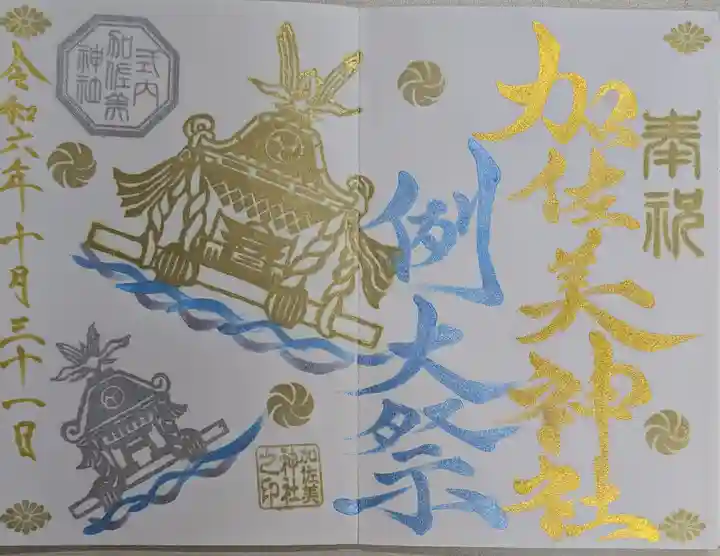 奉祝
加佐美神社
例大祭
式内
加佐美
神社
加佐美
神社
之印
令和六年十月三十一日